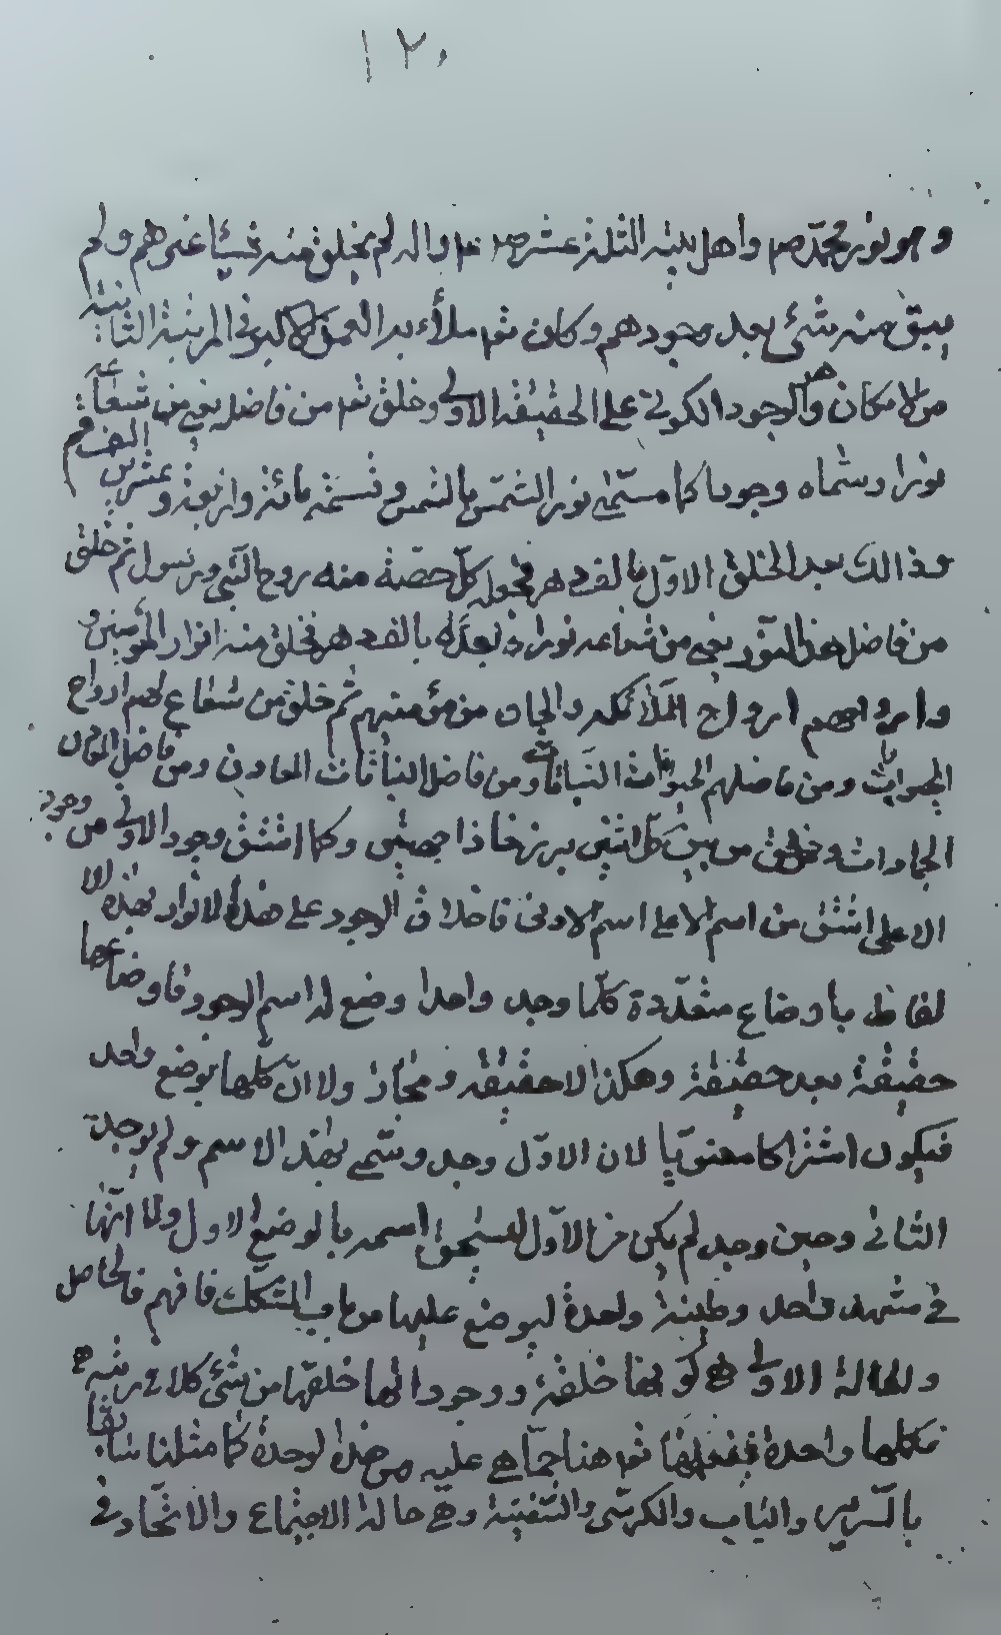 ١٢٠
وهو نور محمد ص واهل بيته الثلثة عشر ص واله لم يخلق منه شيئا غيرهم ولم
يبق منه شئ بعد وجودهم وكان ثم ملأ به العمق الاكبر في المرتبة الثانية
من الامكان والوجود الكوني على الحقيقة الاولى وخلق ثم من فاضله يعني من شعاعه
نورا وسماه وجودا كما سمى نور الشمس بالشمس وقسمه مائة واربعة وعشرين الف قسم
وذالك بعد الخلق الاول بالف دهر فجعل كل حصة منه روح النبي ورسول ثم خلق
من فاضل هذا النور يعني من شعاعه نورا ذ بعدله بالف دهر فخلق منه انوار المؤمنين و
وارواحهم ارواح الملائكة والجان من مؤمنيهم ثم خلق من شعاعهم ارواح
الحيوانات ومن فاضلهم الحيوانات النباتات ومن فاضل النباتات المعادن ومن فاضل المعادن
الجمادات وخلق من بين كل اثنين برزخا ذا جهتين وكما اشتق وجود الاولى من وجود
الاعلى اشتق من اسم الاعلى اسم الادنى فاطلاق الوجود على هذه الانوار بهذه الا
لفاظ باوضاع متعددة كلما وجد واحدا وضع له اسم الوجود فاوضاعها
حقيقة بعد حقيقة وهكذا لا حقيقة ومجاز ولا ان كلها بوضع واحد
فيكون اشتراكا معنويا لان الاول وجد وسمى بهذا الاسم ولم يوجد
الثاني وحين وجد لم يكن من الاول ليستحق اسمه بالوضع الاول ولا انها
في مشهد واحد وطينة واحدة ليوضع عليها من باب التشكك فافهم فالحاصل
والحالة الاولى هي كونها خلقة ووجودا انها خلقها من شئ كلا في رتبته
فكلها واحدة ففعلها ثم هنا جما هي عليه من هذه الوحدة كما مثلنا سابقا
بالسرير والباب والكرسي والسفينة وهي حالة الاجتماع والاتحاد في